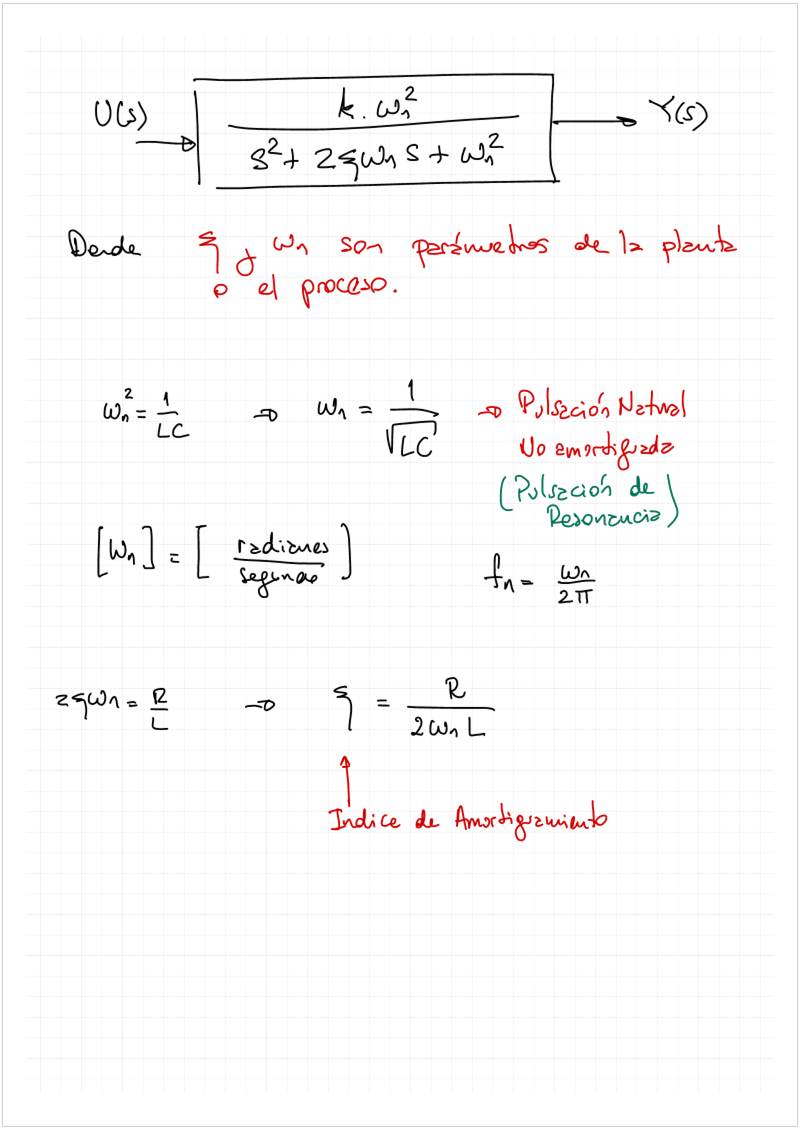 U(s) → k . ωn² / (s² + 2ξωn s + ωn²) → Y(s)
Donde ξ y ωn son parámetros de la planta
o el proceso.
ωn² = 1/LC ⇒ ωn = 1/√LC ⇒ Pulsación Natural
No amortiguada
(Pulsación de
Resonancia)
[Wn] = [radianes/segundo]
fn = ωn/2π
2ξωn = R/L ⇒ ξ = R/(2ωn L)
Indice de Amortiguamiento